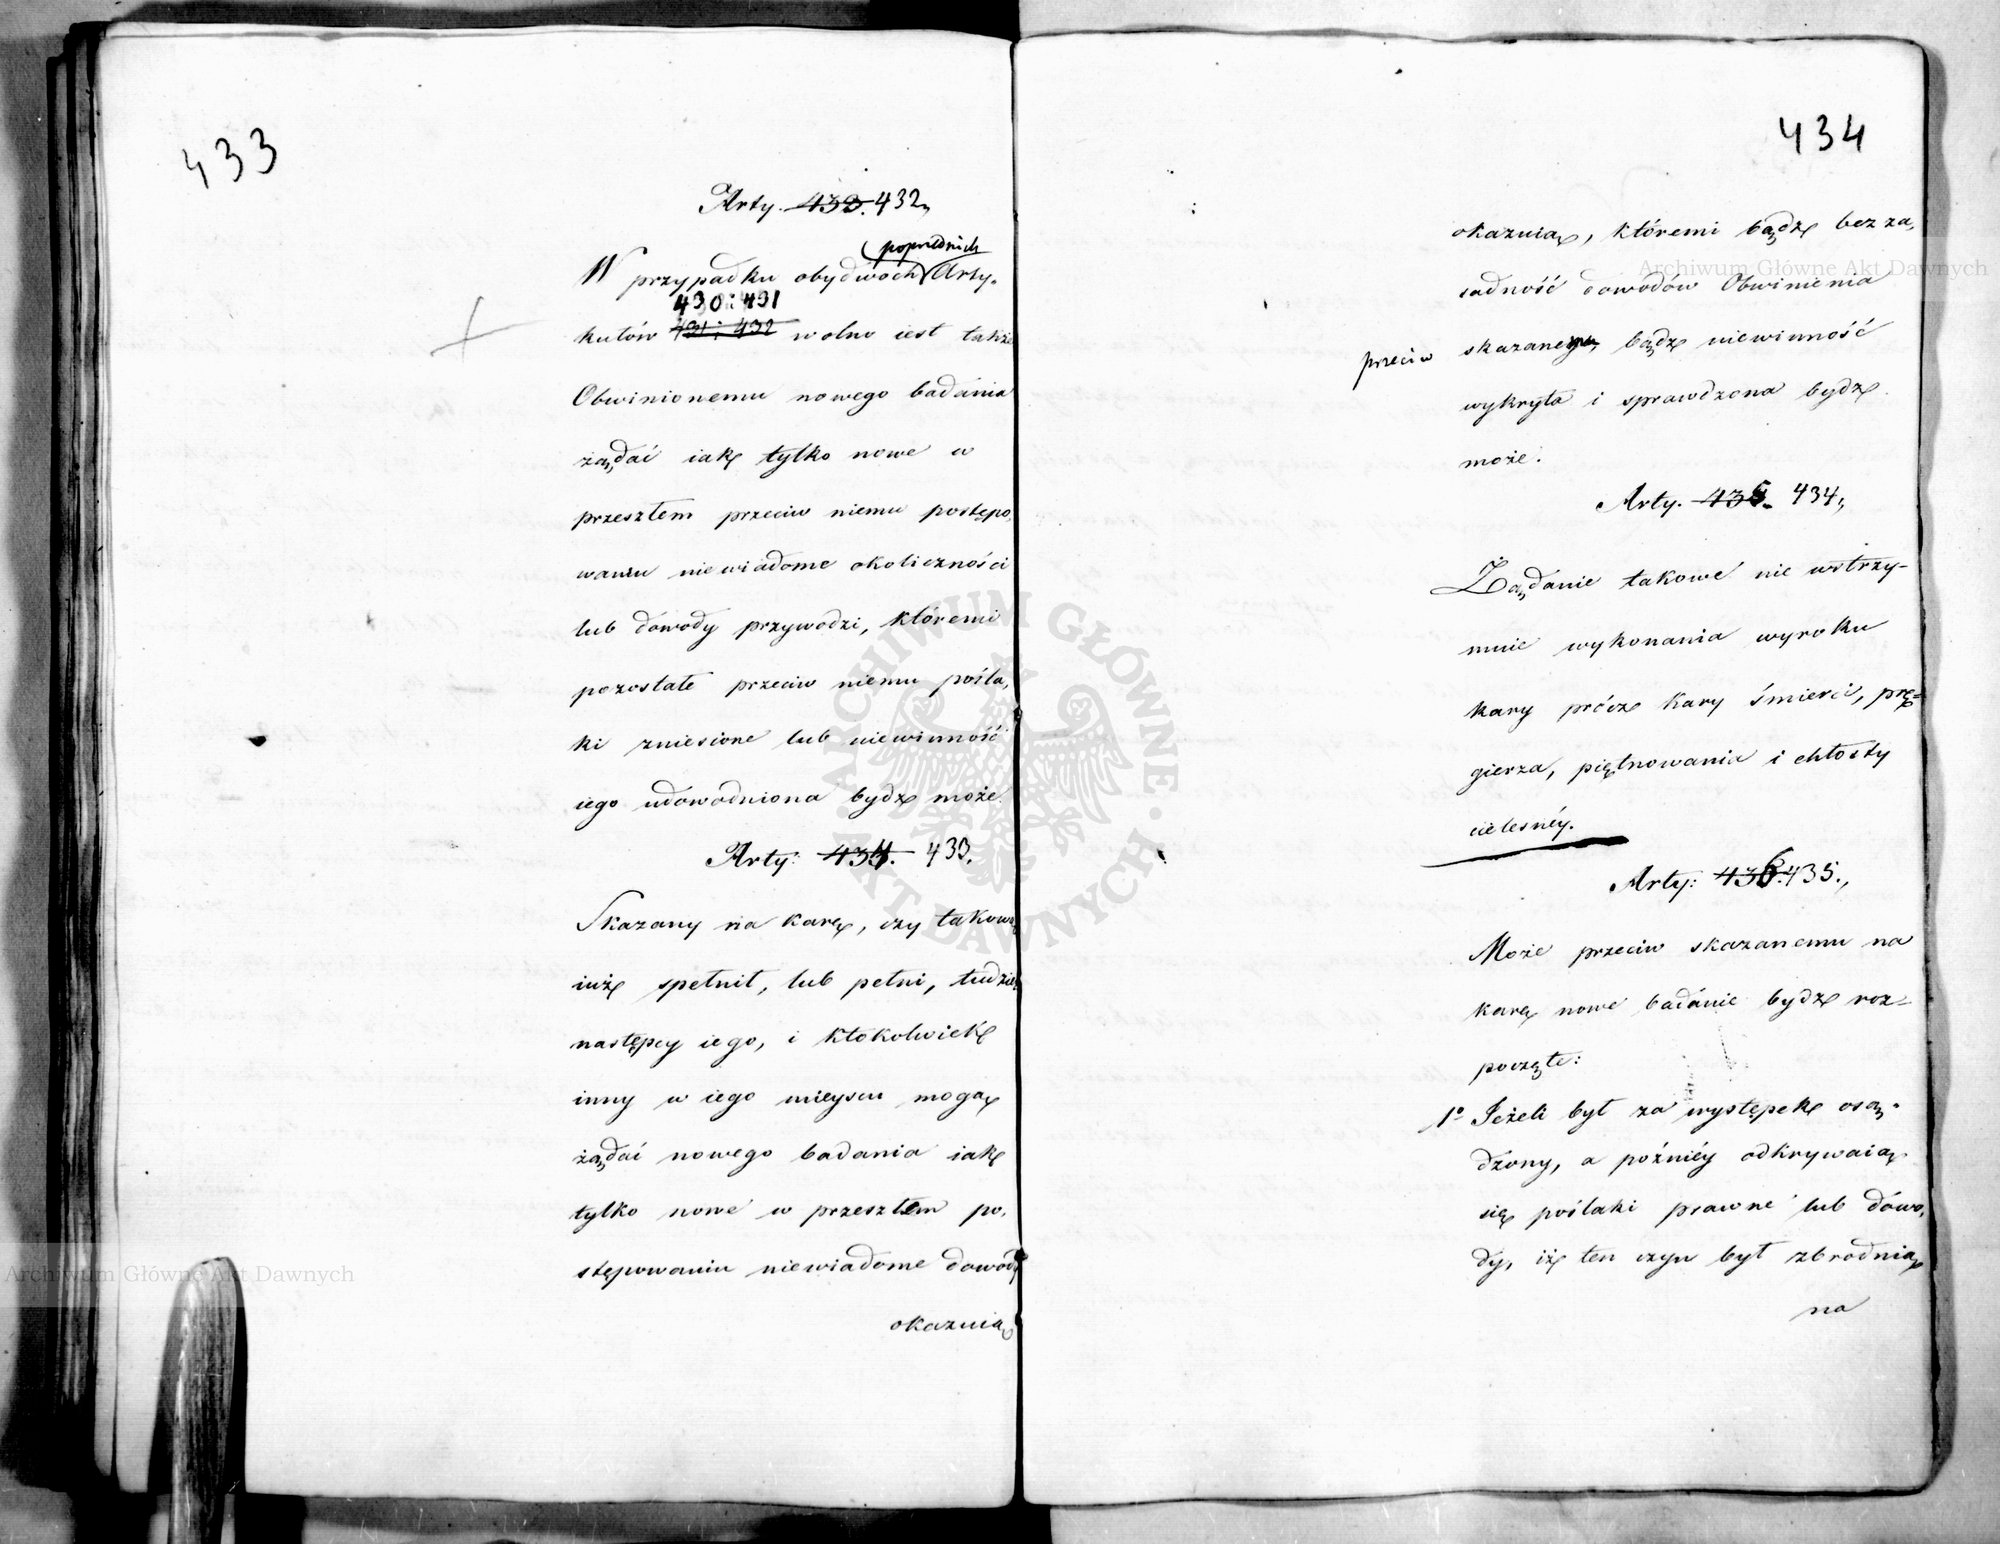 433
Arty. 433. 432,
poprednich
W przypadku obydwóch Arty-
430: 431
kułów 431: 432 wolno iest także
Obwinionemu nowego badánia
żądać iak tylko nowe w
przeszłem przeciw niemu postępo,
waniu niewiadome okoliczności
lub dowody przywodzi, któremi
pozostałe przeciw niemu pośla,
ki zniesione lub niewinność
iego udowodniona bydź może.
Arty: 434. 433.
Skazany na karę, czy takową
iuż spełnił, lub pełni, tudzież
następcy iego, i ktokolwiek
inny w iego mieyscu mogą
żądać nowego badania iak
tylko nowe w przeszłem po,
stępowaniu niewiadome dowody
okazuią
434
okazuią, któremi bądź bez za,
sadność dowodów Obwinienia
przeciw skazanemu, bądź niewinność
wykryta i sprawdzona bydź
może.
Arty. 435. 434,
Żądanie takowe nie wstrzy-
muie wykonania wyroku
kary prócz kary śmierci, prę-
gierza, piętnowania i chłosty
cielesnéy.
Arty: 436. 435.,
Może przeciw skazanemu na
karę nowe badánie bydź roz-
poczęte:
1º Jeżeli był za występek osą-
dzony, a poźniéy odkrywaią
się poślaki prawne lub dówo,
dy, iż ten czyn był zbrodnią
na
Archiwum Główne Akt Dawnych
Archiwum Główne Akt Dawnych
ARCHIWUM GŁÓWNE AKT DAWNYCH